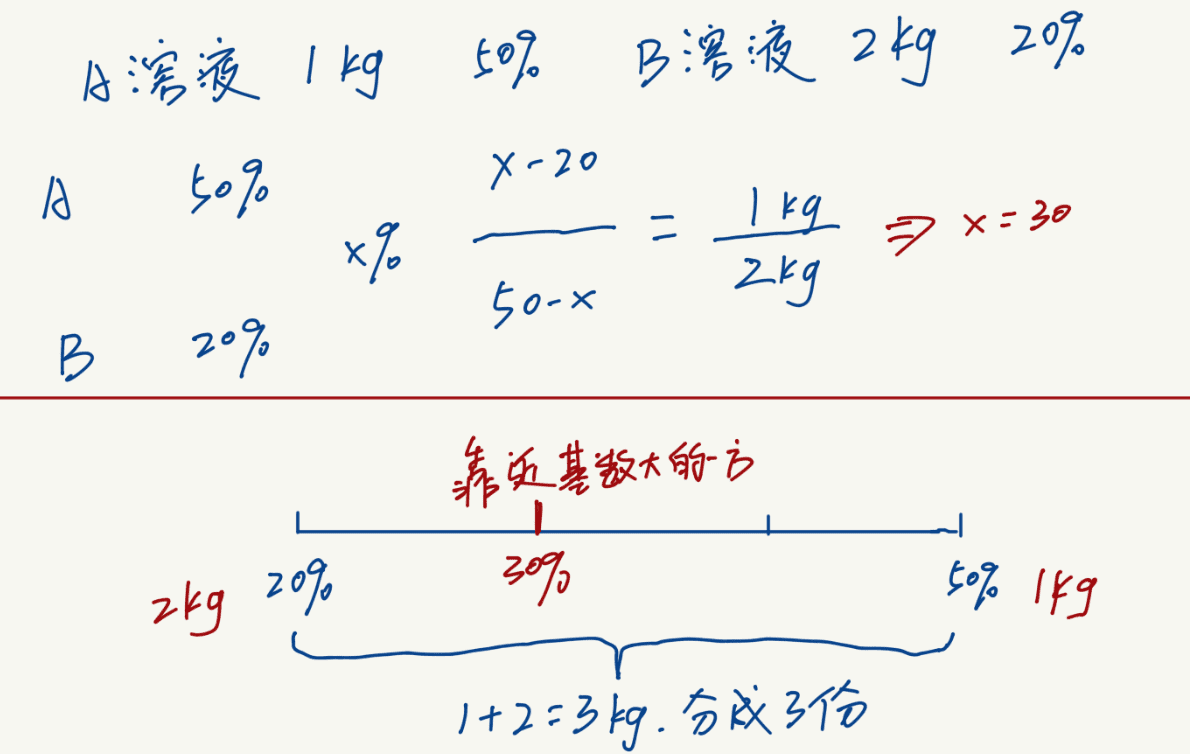 A溶液 1kg 50% B溶液 2kg 20%
A 50%
x%
B 20%
x-20
50-x
= 1kg
2kg
⇒ x=30
靠近基数大的一方
2kg 20% 30% 50% 1kg
1+2=3kg.分成3份